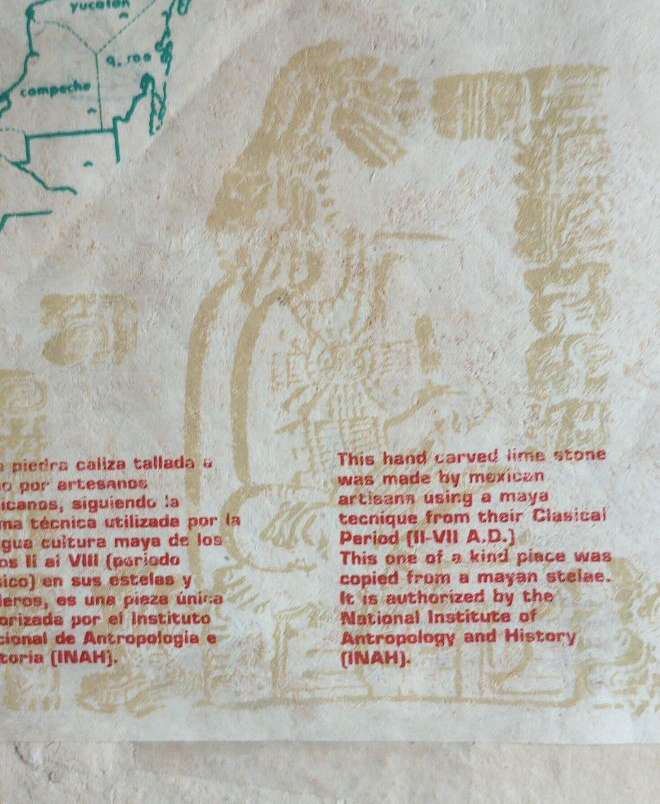 yucatan
q. roo
campeche
piedra caliza tallada a
por artesanos
icanos, siguiendo la
ma técnica utilizada por la
gua cultura maya de los
os II al VIII (periodo
sico) en sus estelas y
eros, es una pieza única
orizada por el Instituto
cional de Antropologia e
toria (INAH).
This hand carved lime stone
was made by mexican
artisans using a maya
tecnique from their Clasical
Period (II-VII A.D.)
This one of a kind piece was
copied from a mayan stelae.
It is authorized by the
National Institute of
Antropology and History
(INAH).